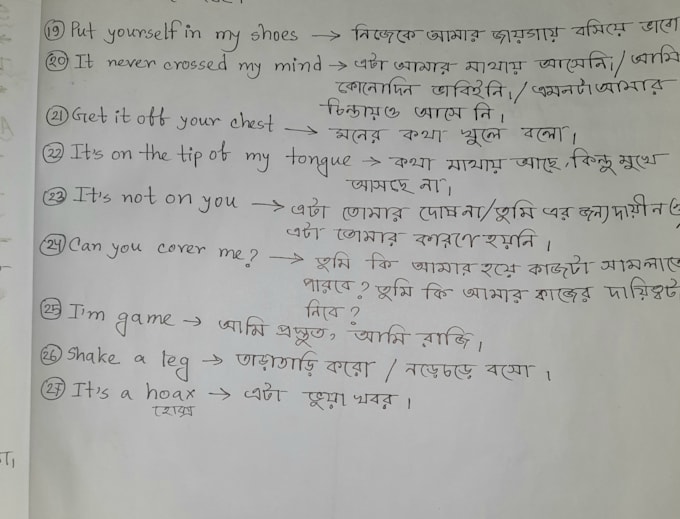 19 Put yourself in my shoes → নিজেকে আমার জায়গায় বসিয়ে ভাবো
20 It never crossed my mind → এটা আমার মাথায় আসেনি।/ আমি
কোনোদিন ভাবিইনি।/ এমনটা আমার
চিন্তায়ও আসে নি।
21 Get it off your chest → মনের কথা খুলে বলো।
22 It's on the tip of my tongue → কথা মাথায় আছে, কিন্তু মুখে
আসছে না।
23 It's not on you → এটা তোমার দোষ না/ তুমি এর জন্য দায়ী ন
এটা তোমার কারণে হয়নি।
24 Can you cover me? → তুমি কি আমার হয়ে কাজটা সামলাতে
পারবে? তুমি কি আমার কাজের দায়িত্বটা
নিবে?
25 I'm game → আমি প্রস্তুত, আমি রাজি।
26 Shake a leg → তাড়াতাড়ি করো / নড়েচড়ে বসো।
27 It's a hoax → এটা ভুয়া খবর।
হোক্স